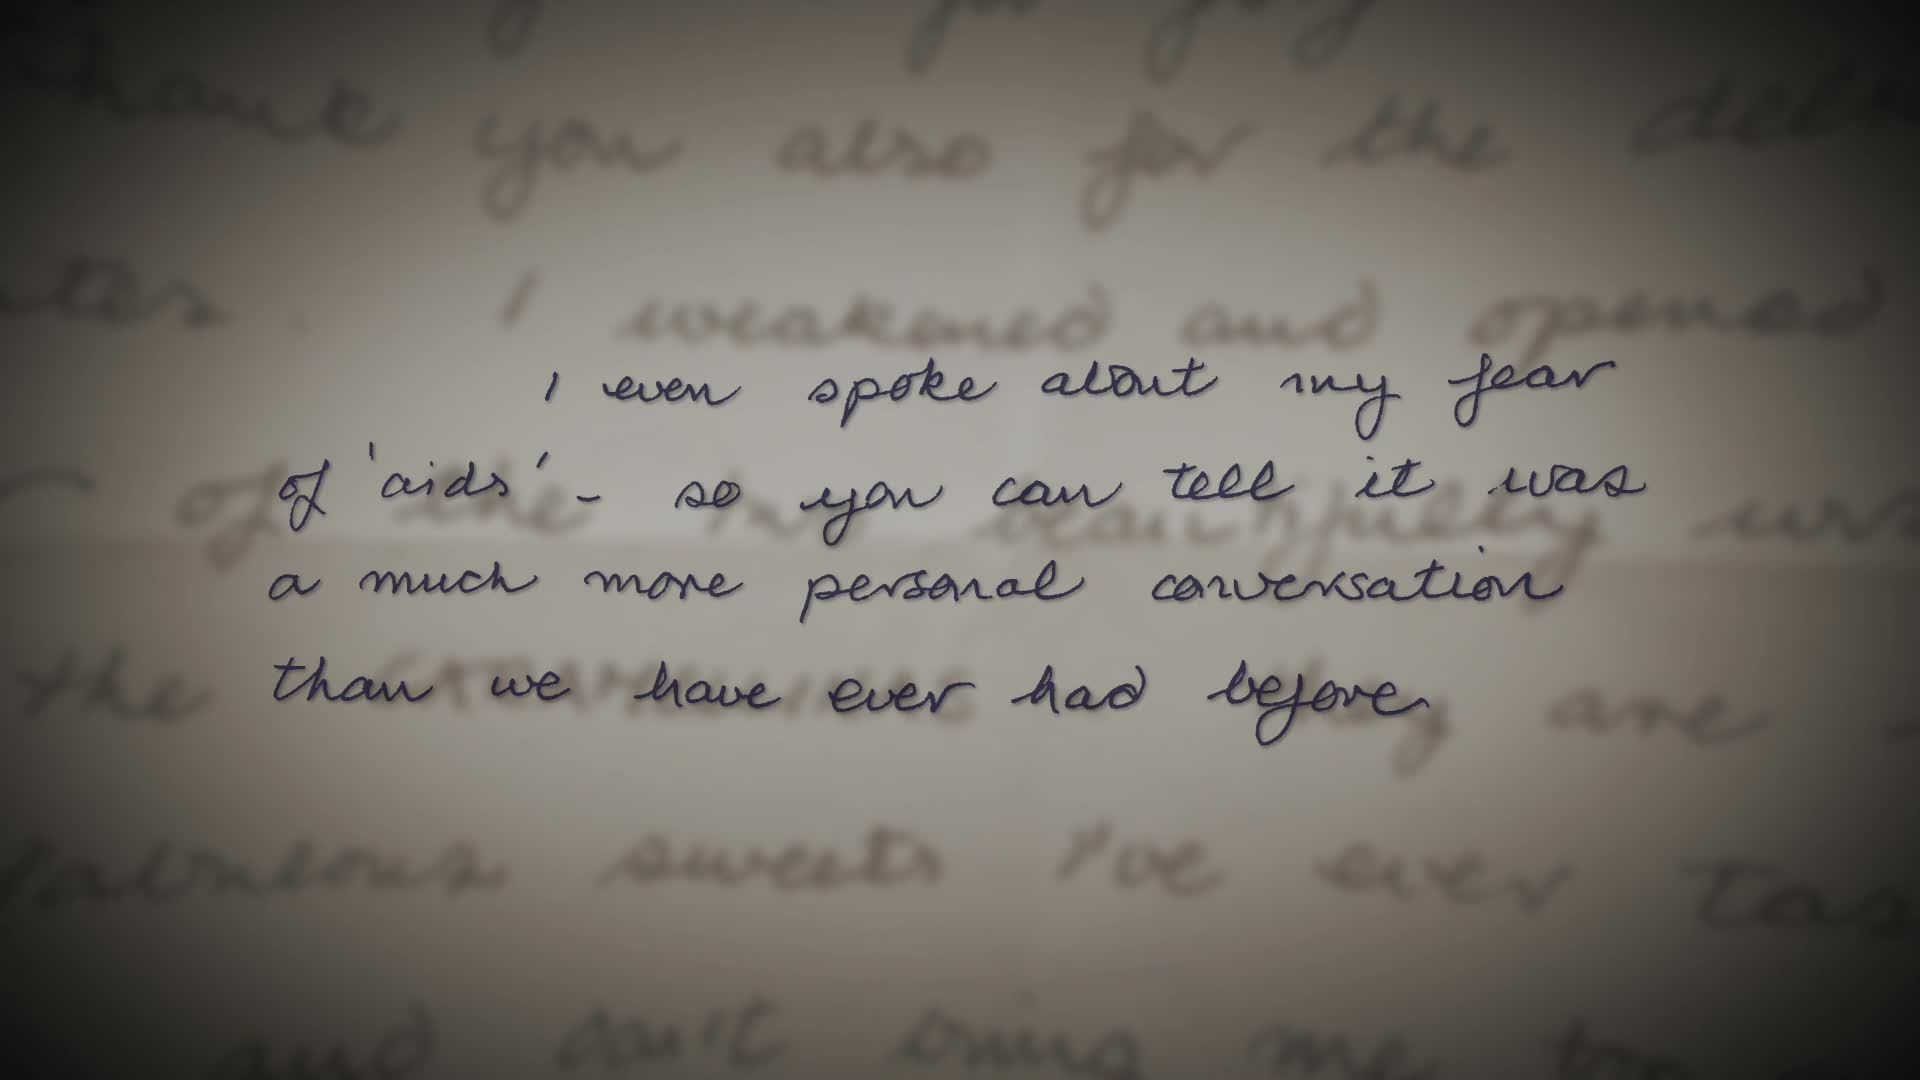 thank you also for the
I weakened and opened
I even spoke about my fear
of 'aids' - so you can tell it was
a much more personal conversation
than we have ever had before
the are
fabulous sweets I've ever
and don't bring me